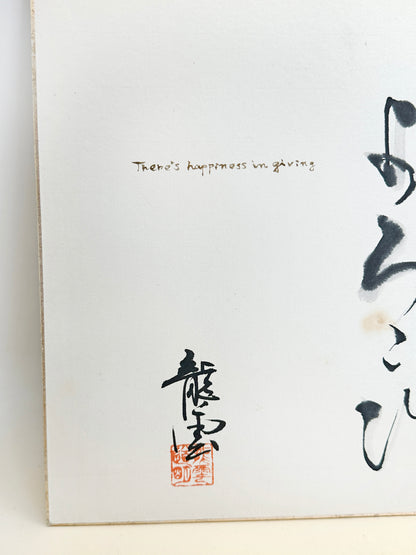 よろこび
There's happiness in giving
龍雲